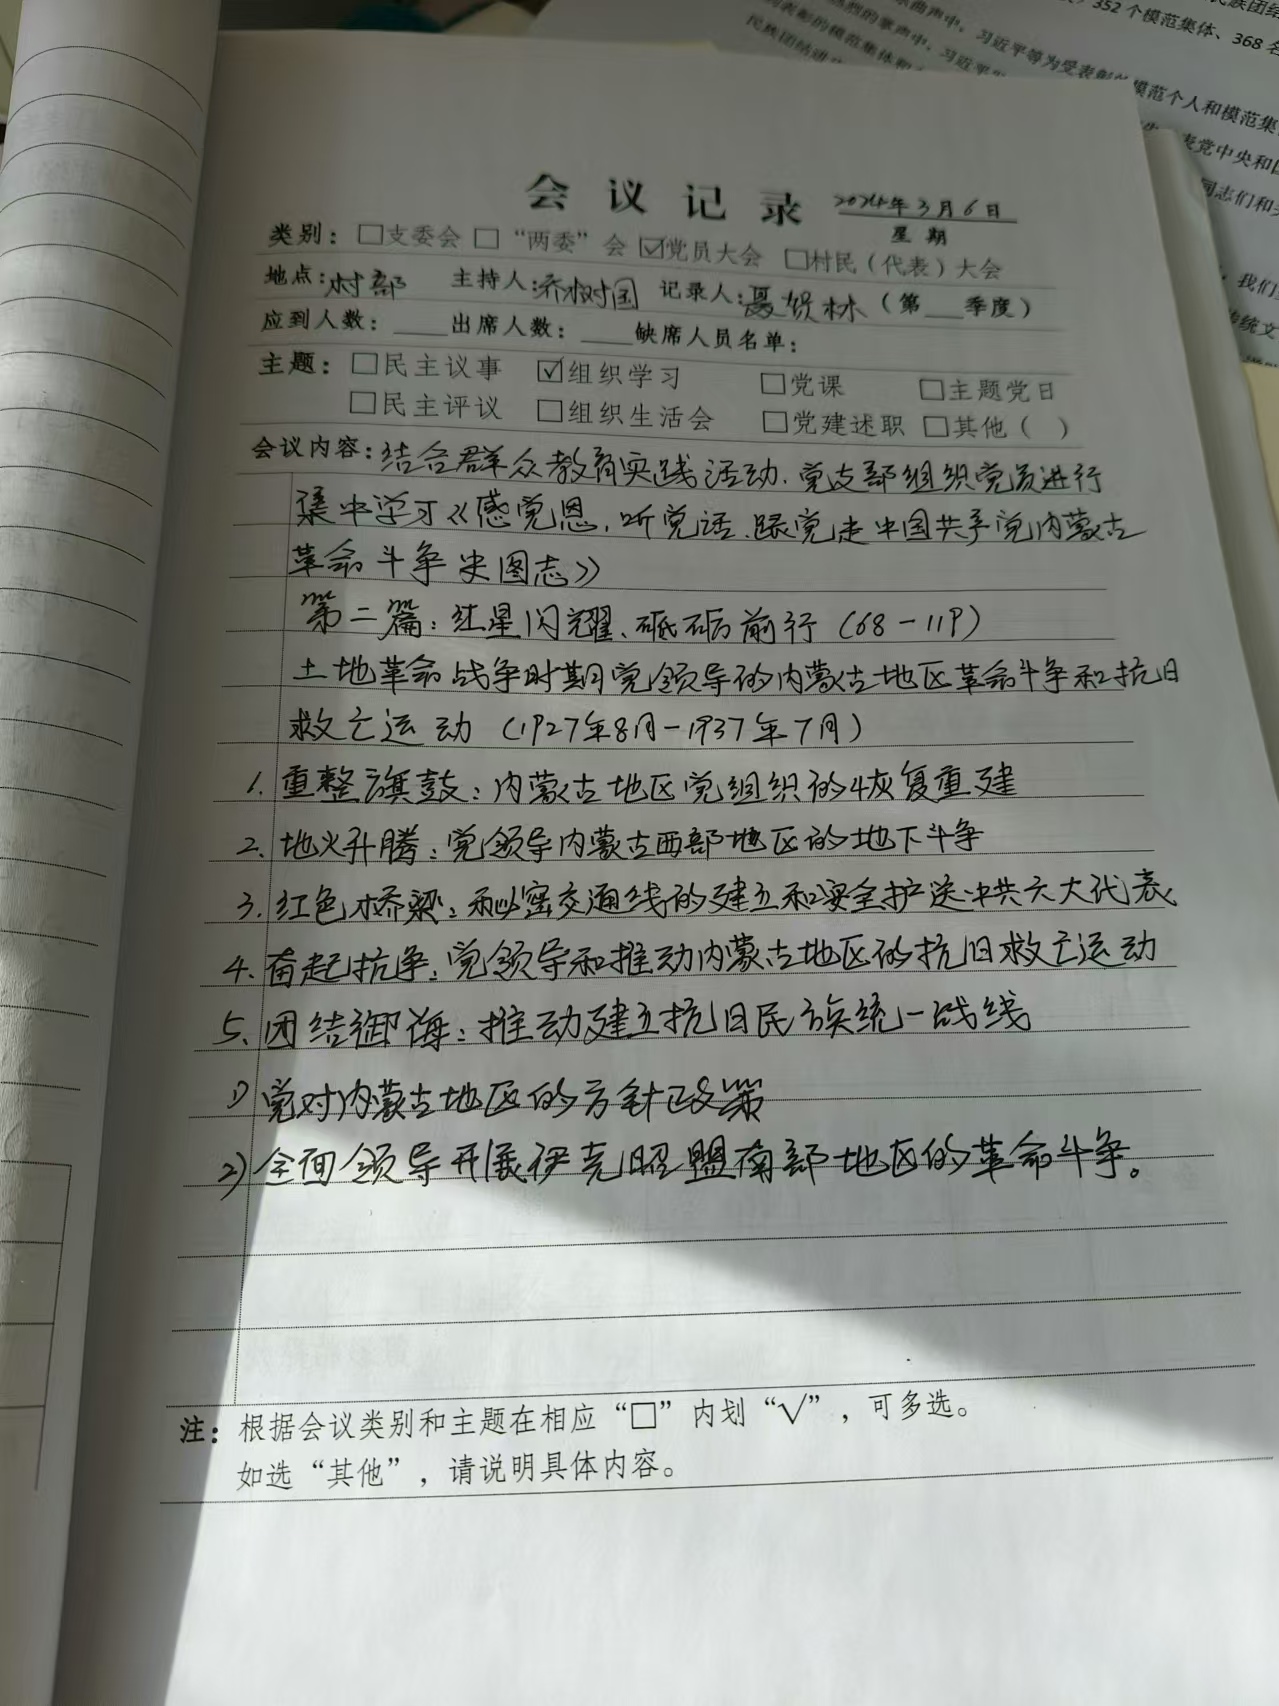 352个模范集体、368名
习近平等为受表彰的模范个人和模范集
会议记录 2024年3月6日
星期
类别：□支委会 □“两委”会 ☑党员大会 □村民（代表）大会
地点：村部 主持人：乔树国 记录人：聂贺林（第__季度）
应到人数：____出席人数：____缺席人员名单：
主题：□民主议事 ☑组织学习 □党课 □主题党日
□民主评议 □组织生活会 □党建述职 □其他（ ）
会议内容：结合群众教育实践活动.党支部组织党员进行
集中学习《感党恩,听党话.跟党走中国共产党内蒙古
革命斗争史图志》
第二篇：红星闪耀、砥砺前行（68-119）
土地革命战争时期党领导的内蒙古地区革命斗争和抗日
救亡运动（1927年8月-1937年7月）
1.重整旗鼓：内蒙古地区党组织的恢复重建
2.地火升腾：党领导内蒙古西部地区的地下斗争
3.红色桥梁：秘密交通线的建立和安全护送中共六大代表
4.奋起抗争：党领导和推动内蒙古地区的抗日救亡运动
5.团结御侮：推动建立抗日民族统一战线
1)党对内蒙古地区的方针政策
2)全面领导开展伊克昭盟南部地区的革命斗争。
注：根据会议类别和主题在相应“□”内划“√”，可多选。
如选“其他”，请说明具体内容。